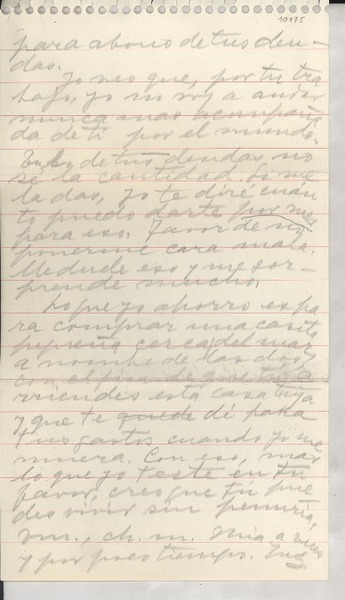 10175
para abono de tus deu-
das.
Yo veo que, por tu tra
bajo, yo no voy a andar
nunca mas acompaña
da de ti por el mundo.
de tus deudas no
sé la cantidad. Si me
la das, yo te diré cuán
to puedo darte por mes
para eso. Favor de no
ponerme cara mala.
Me duele eso y me sor-
prende mucho.
Lo que yo ahorro es pa
ra comprar una casita
pequeña cerca del mar
a nombre de las dos
con el fin de que tú a
rriendes esta casa tuya
y que te quede dé para
tus gastos cuando yo me
muera. Con eso, mas
lo que yo teste en tu
favor, creo que tú pue
des vivir sin penuria,
m., ch. m. Mía a veces
y por poco tiempo.